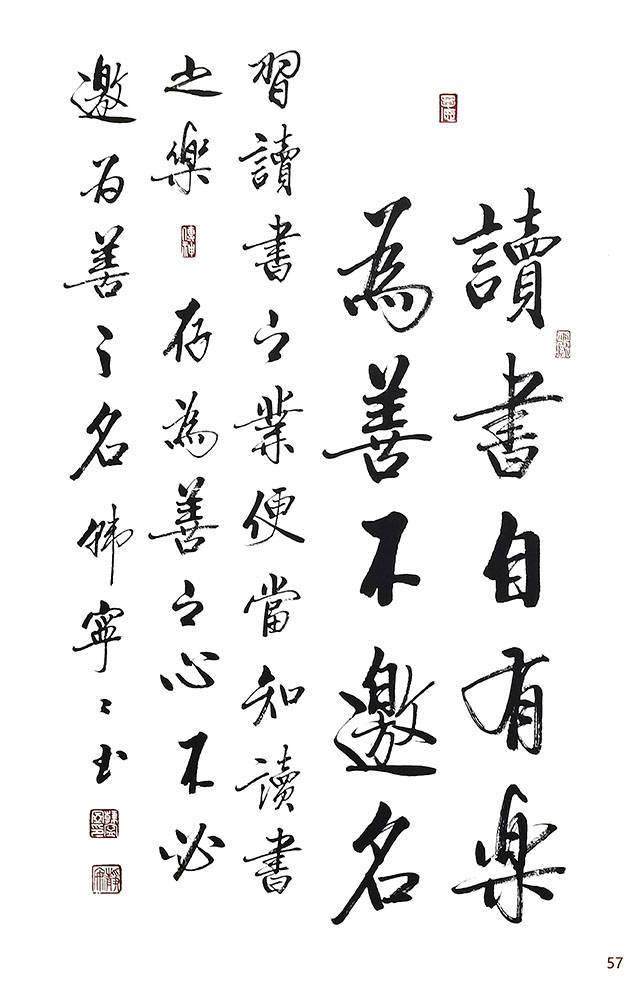 讀書自有樂
為善不邀名
習讀書之業便當知讀書
之樂 存為善之心不必
邀為善之名 韩寧寧书
57